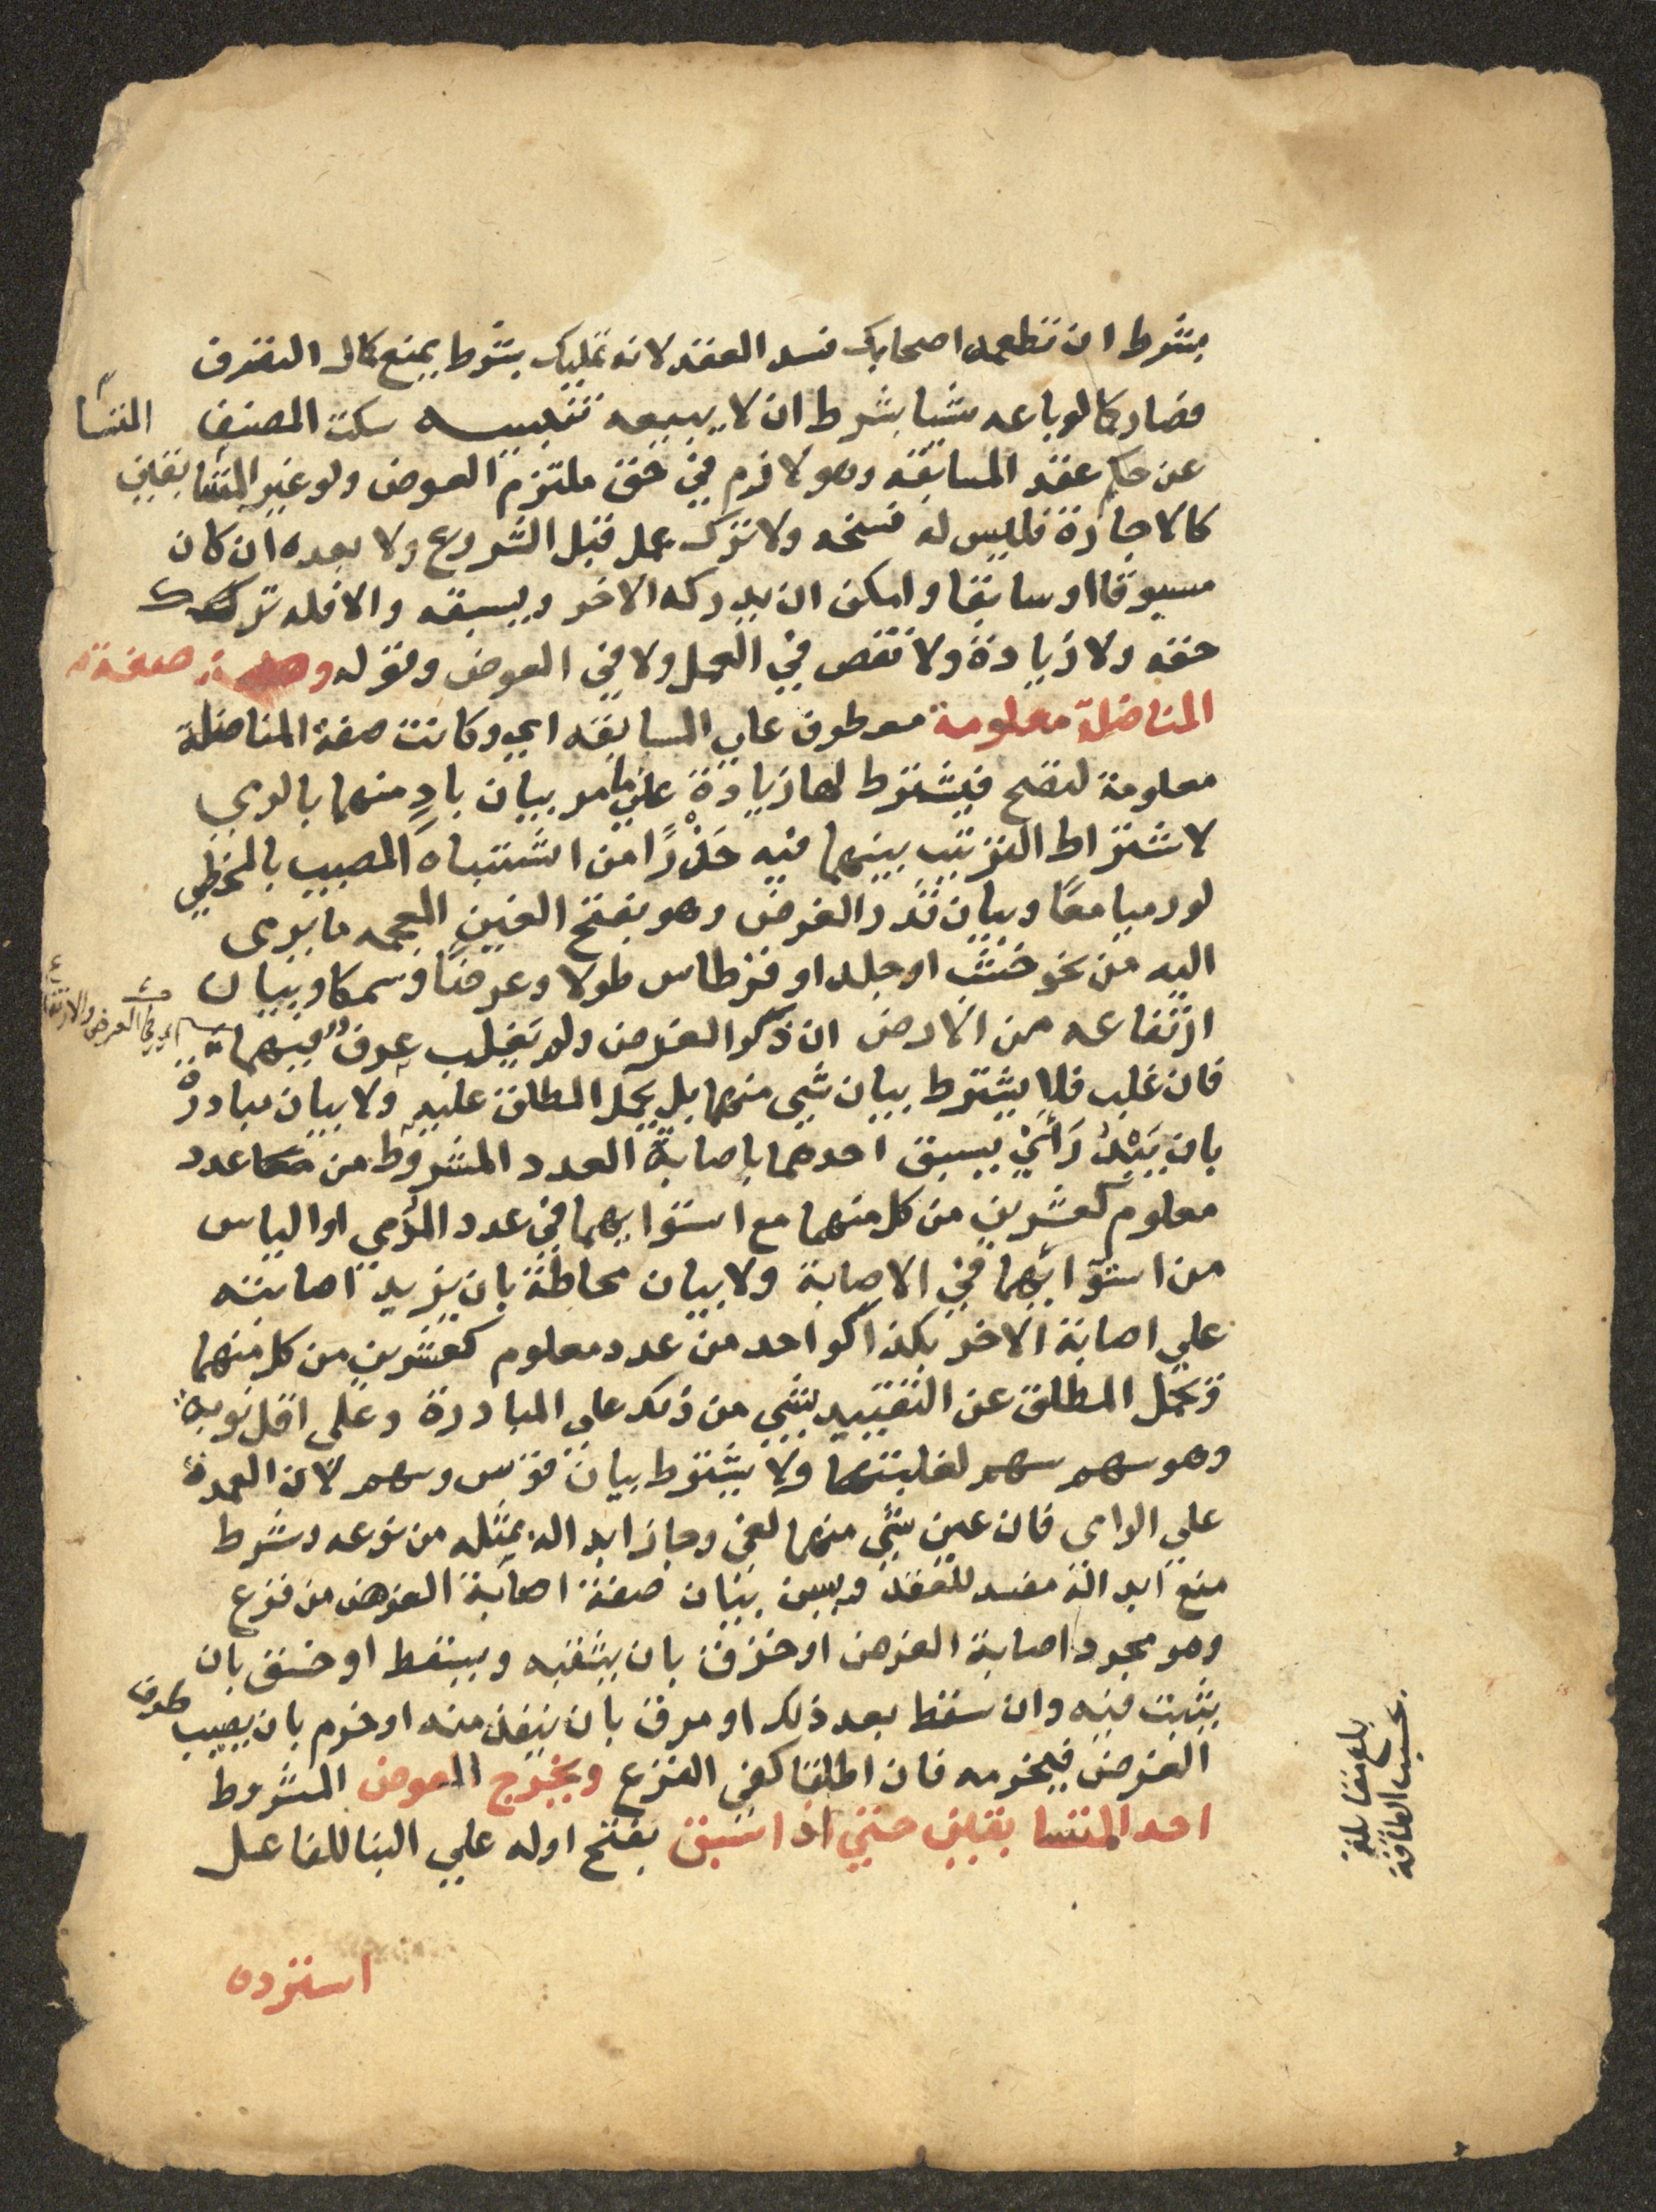 بشرط ان تطعمه اصحابك فسد العقد لانه تمليك بشرط يمنع كمال التصرف
فصار كما لو باعه شيا بشرط ان لا يبيعه تنبيه سكت المصنف
عن حكم عقد المسابقه وهو لازم في حق ملتزم العوض ولو غير المتسابقين
كالاجارة فليس له فسخه ولا ترك عمل قبل الشروع ولا بعده ان كان
مسبوقا او سابقا وامكن ان يدركه الاخر ويسبقه والا فله ترك
حقه ولا زيادة ولا نقص في العمل ولا في العوض وقوله وصفة
المناضلة معلومة معطوف على المسابقه اي وكانت صفة المناضلة
معلومة لتصح فيشترط لها زيادة على ما مر بيان بادٍ منهما بالرمي
لاشتراط الترتيب بينهما فيه حَذْرًا من اشتباه المصيب بالمخطي
لو رميا معًا وبيان قدر الغرض وهو بفتح الغين المعجمه ما يرمى
اليه من نحو خشب او جلد او قرطاس طولا وعرضًا وسمكا وبيان
ارتفاعه من الارض ان ذكر الغرض ولم يغلب عرف فيهما
فان غلب فلا يشترط بيان شي منهما بل يحمل المطلق عليه ولا بيان مبادرة
بان يَبْدُرَ اَيْ يسبق احدهما باصابة العدد المشروط من عدد
معلوم كعشرين من كل منهما مع استوايهما في عدد المرمي او الياس
من استوائهما في الاصابة ولا بيان محاطة بان يزيد اصابته
علي اصابة الاخر بكذا كواحد من عدد معلوم كعشرين من كل منهما
ويحمل المطلق عن التقييد بشي من ذلك على المبادرة وعلى اقل نوبه
وهو سهم سهم لغلبتهما ولا يشترط بيان قوس وسهم لان العمدة
علي الرامى فان عين شي منهما لغى وجاز ابداله بمثله من نوعه وشرط
منع ابداله مفسد للعقد ويسن بيان صفة اصابة الغرض من قرع
وهو مجرد اصابة الغرض او خزق بان يثقبه ويسقط او خسق بان
يثبت فيه وان سقط بعد ذلك او مرق بان ينفذ منه او خرم بان يصيب طرف
الغرض فيخرمه فان اطلقا كفى القرع ويخرج العوض المشروط
احد المتسابقين حتي اذا سبق بفتح اوله علي البنا للفاعل
استرده
بلغ مقابلة
بحسب الطاقة